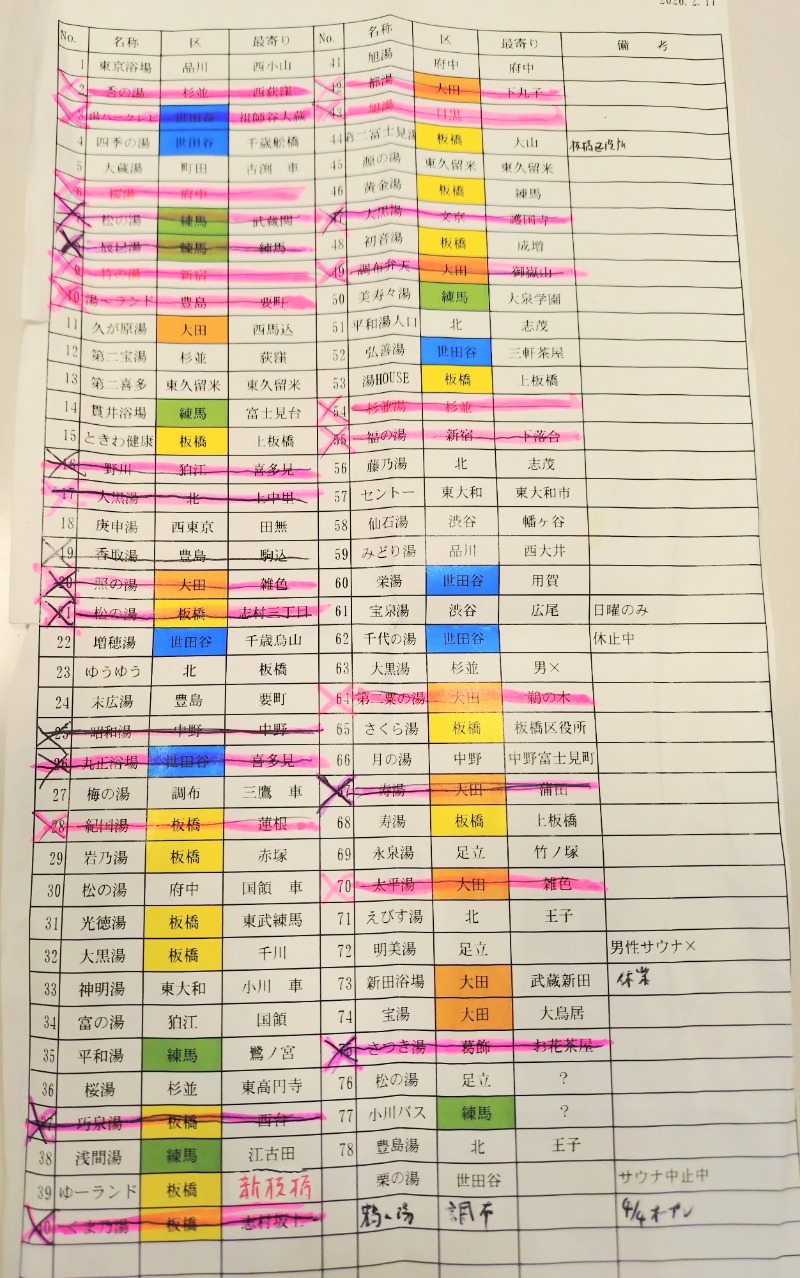 2026.2.17
No. 名称 区 最寄り
1 東京浴場 品川 西小山
2 秀の湯 杉並 西荻窪
3 湯パークレビ 世田谷 祖師谷大蔵
4 四季の湯 世田谷 千歳船橋
5 大蔵湯 町田 古渕 車
6 桜湯 府中
7 松の湯 練馬 武蔵関
8 辰巳湯 練馬 練馬
9 竹の湯 新宿
10 湯〜ランド 豊島 要町
11 久が原湯 大田 西馬込
12 第二宝湯 杉並 荻窪
13 第二喜多 東久留米 東久留米
14 貫井浴場 練馬 富士見台
15 ときわ健康 板橋 上板橋
16 野川 狛江 喜多見
17 大黒湯 北 上中里
18 庚申湯 西東京 田無
19 香取湯 豊島 駒込
20 照の湯 大田 雑色
21 松の湯 板橋 志村三丁目
22 増穂湯 世田谷 千歳烏山
23 ゆうゆう 北 板橋
24 末広湯 豊島 要町
25 昭和湯 中野 中野
26 丸正浴場 世田谷 喜多見
27 梅の湯 調布 三鷹 車
28 紀国湯 板橋 蓮根
29 岩乃湯 板橋 赤塚
30 松の湯 府中 国領 車
31 光徳湯 板橋 東武練馬
32 大黒湯 板橋 千川
33 神明湯 東大和 小川 車
34 富の湯 狛江 国領
35 平和湯 練馬 鷺ノ宮
36 桜湯 杉並 東高円寺
37 巧泉湯 板橋 西台
38 浅間湯 練馬 江古田
39 ゆーランド 板橋 新板橋
40 くま乃湯 板橋 志村坂上
No. 名称 区 最寄り 備考
41 旭湯 府中 府中
42 都湯 大田 下丸子
43 旭湯 目黒
44 第二富士見湯 板橋 大山 板橋区役所
45 源の湯 東久留米 東久留米
46 黄金湯 板橋 練馬
47 大黒湯 文京 護国寺
48 初音湯 板橋 成増
49 調布弁天 大田 御嶽山
50 美寿々湯 練馬 大泉学園
51 平和湯人口 北 志茂
52 弘善湯 世田谷 三軒茶屋
53 湯HOUSE 板橋 上板橋
54 杉並湯 杉並
55 福の湯 新宿 下落合
56 藤乃湯 北 志茂
57 セントー 東大和 東大和市
58 仙石湯 渋谷 幡ヶ谷
59 みどり湯 品川 西大井
60 栄湯 世田谷 用賀
61 宝泉湯 渋谷 広尾 日曜のみ
62 千代の湯 世田谷 休止中
63 大黒湯 杉並 男×
64 第二粟の湯 大田 鵜の木
65 さくら湯 板橋 板橋区役所
66 月の湯 中野 中野富士見町
67 寿湯 大田 蒲田
68 寿湯 板橋 上板橋
69 永泉湯 足立 竹ノ塚
70 太平湯 大田 雑色
71 えびす湯 北 王子
72 明美湯 足立 男性サウナ×
73 新田浴場 大田 武蔵新田 休業
74 宝湯 大田 大鳥居
75 さつき湯 葛飾 お花茶屋
76 松の湯 足立 ?
77 小川バス 練馬 ?
78 豊島湯 北 王子
栗の湯 世田谷 サウナ中止中
鶴の湯 調布 4/4オープン